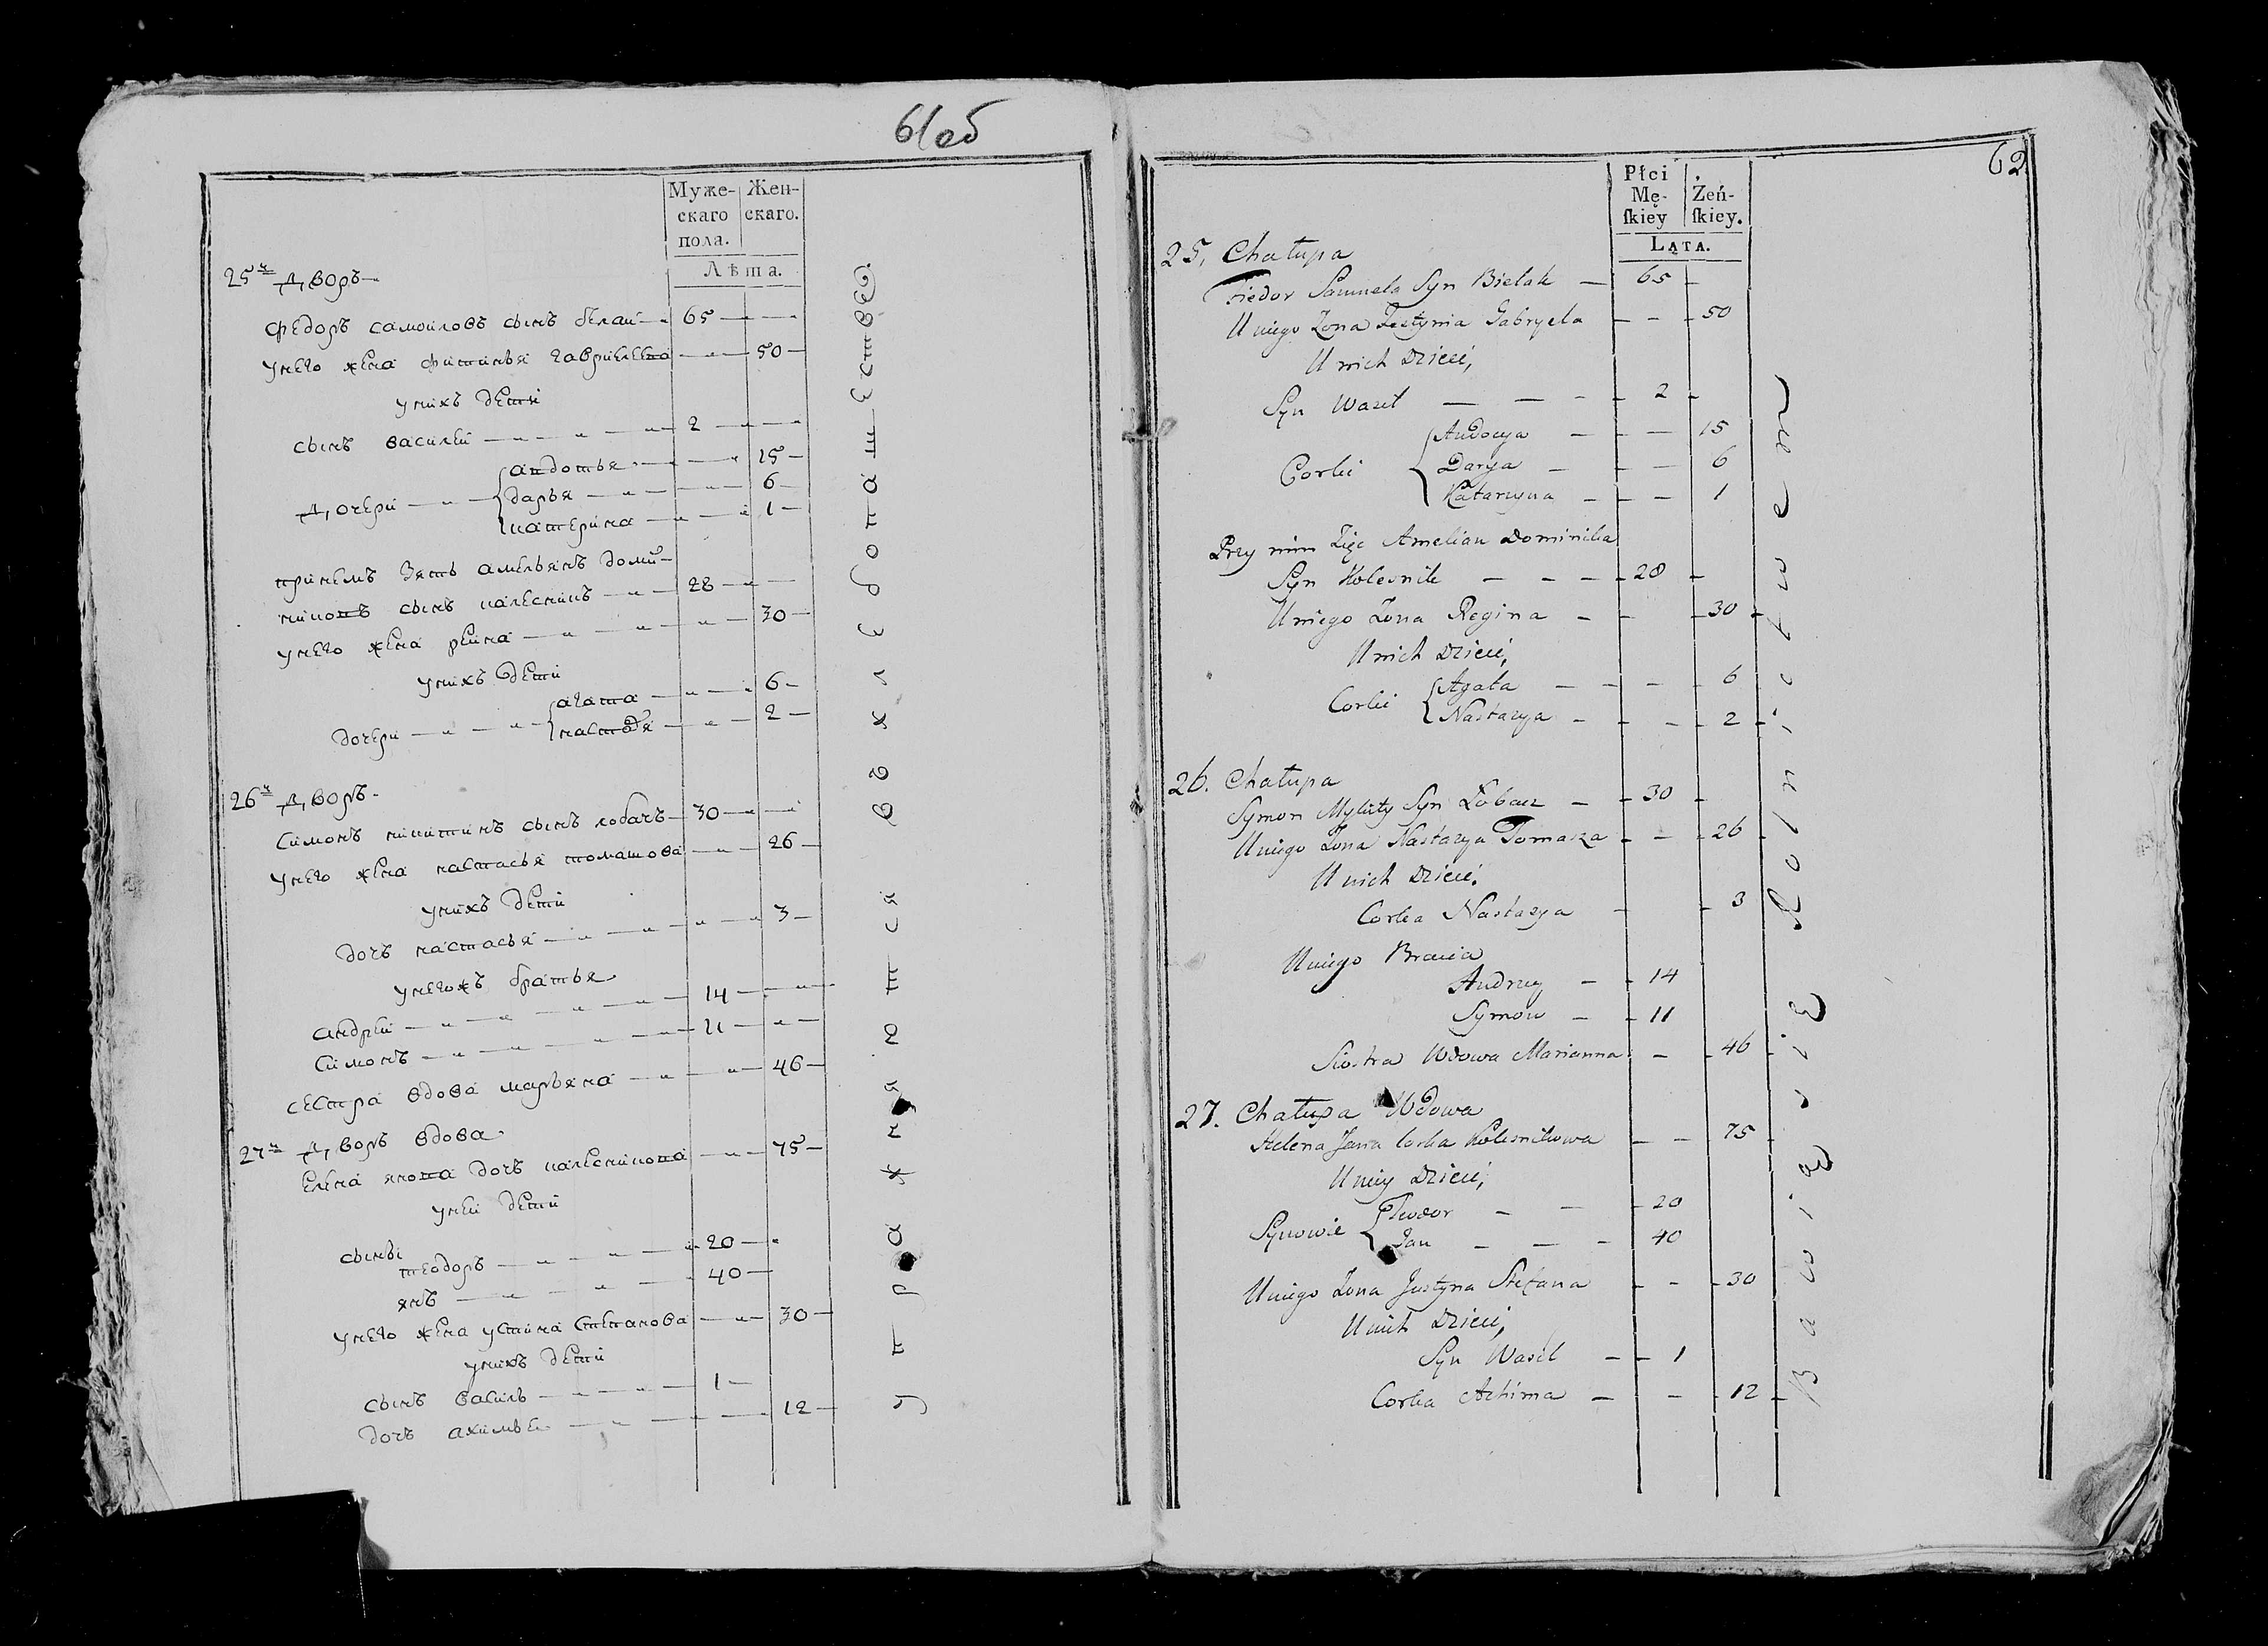 61об
Муже-
скаго
пола.
Жен-
скаго.
Лѣта.
25й дворъ
федоръ самойловъ сынъ белай 65
унего жена фитинья гавриилева 50
унихъ дети
сынъ василей 2
дочери
андотья 15
дарья 6
катерина 1
принемъ зять амельянъ доми-
никовъ сынъ калесникъ 28
унего жена регина 30
унихъ дети
дочери
агата 6
настася 2
26й дворъ
симонъ никитинъ сынъ лобачъ 30
унего жена настасья томашова 26
унихъ дети
дочь настасья 3
унегожъ братья
андрей 14
симонъ 11
сестра вдова марьяна 46
27й дворъ вдова
елена янова дочь калесникова 75
уней дети
сыны
теодоръ 20
янъ 40
унего жена устина степанова 30
унихъ дети
сынъ василь 1
дочь ахимья 12
упражняется въ хлебопашестве.
62
Płci
Mę-
ſkiey
Żeń-
ſkiey.
Lata.
25. Chałupa
Fiedor Samuela Syn Bielak 65
U niego Żona Festynia Gabryela 50
U nich Dzieci,
Syn Wasil 2
Corki
Audocya 15
Darya 6
Katarzyna 1
Przy nim Zięć Amelian Dominika
Syn Kolesnik 28
U niego Żona Regina 30
U nich Dzieci,
Corki
Agata 6
Nastazya 2
26. Chałupa
Symon Mykity Syn Łobacz 30
U niego Żona Nastazya Tomasza 26
U nich Dzieci.
Corka Nastazya 3
U niego Bracia
Andrzey 14
Symon 11
Siostra Wdowa Marianna 46
27. Chałupa Wdowa
Helena Jana Corka Kolesnikowa 75
U niey Dzieci,
Synowie
Teodor 20
Jan 40
U niego Żona Justyna Stefana 30
U nich Dzieci,
Syn Wasil 1
Corka Achima 12
Bawią się Rolnictwem